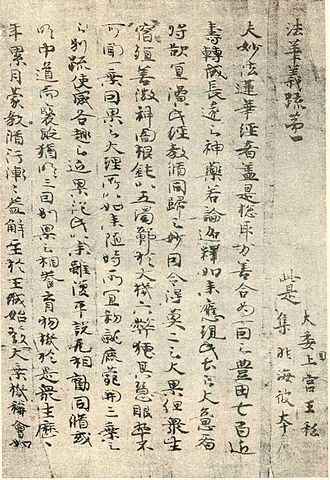 法華義疏第一
此是
大委上宮王私
集非海彼本
夫妙法蓮華經者蓋是惣取万善合為一因之豊田七百近
壽轉成長遠之神藥若論釋如來應現此土之大意者
將欲宜演此經教脩同歸之妙因令得莫二之大果但衆生
宿殖善微神闇根鈍以五濁鄣於大機六弊掩其慧眼卒不
可聞一乘因果之大理所以如來隨時所宜初就鹿苑開三乘之
別疏使感各趣之近果從此以來雖復平説无相勸同脩或
明中道而褒貶猶明三因別果之相養育物機於是衆生歷
年累月蒙教脩行漸漸益解至於王城始發大乘機稱會如